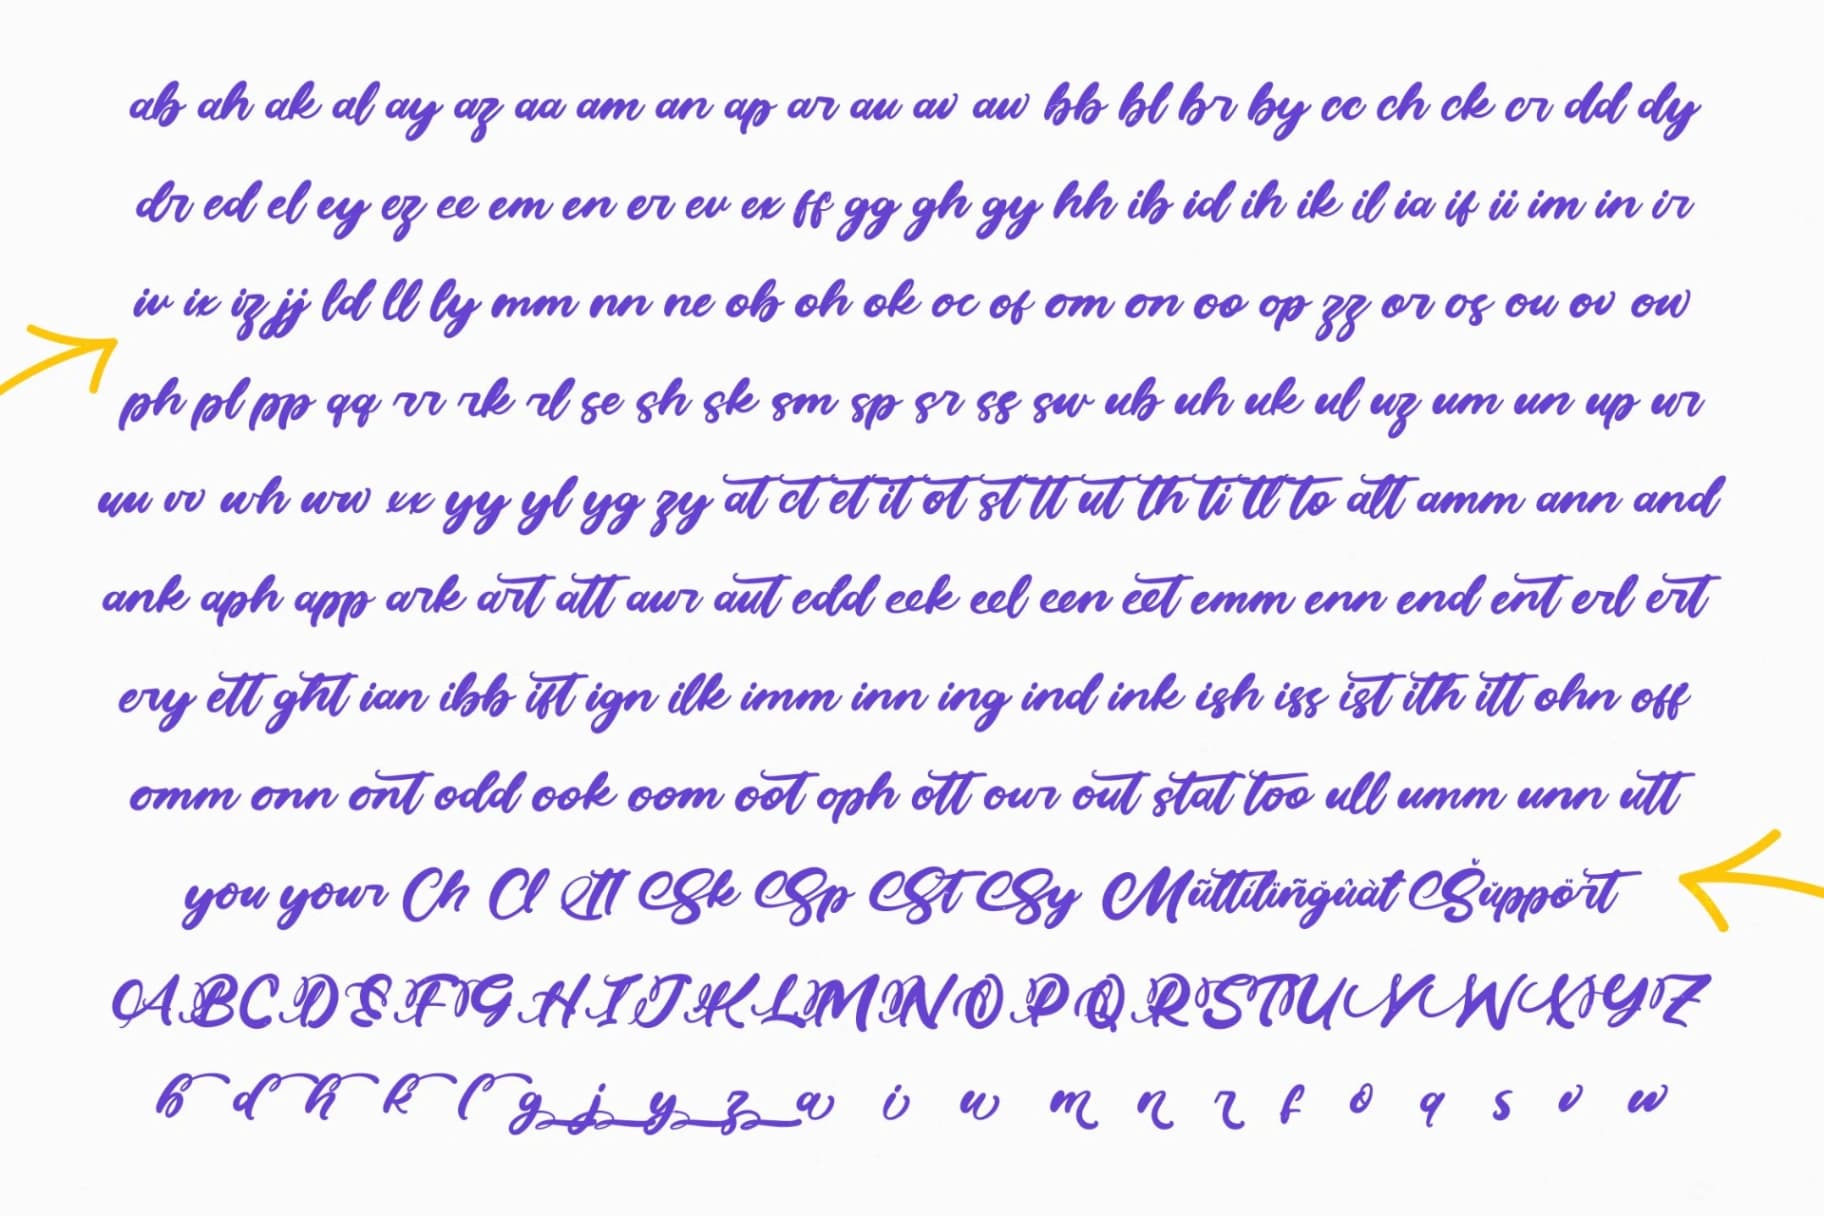 ab ah ak al ay az aa am an ap ar au av aw bb bl br by cc ch ck cr dd dy
dr ed el ey ez ee em en er ev ex ff gg gh gy hh ib id ih ik il ia if ii im in ir
iv ix iz jj ld ll ly mm nn ne ob oh ok oc of om on oo op zz or os ou ov ow
ph pl pp qq rr rk rl se sh sk sm sp sr ss sw ub uh uk ul uz um un up ur
uu vv wh ww xx yy yl yg zy at ct et it ot st tt ut th ti tl to att amm ann and
ank aph app ark art att aur aut edd eek eel een eet emm enn end ent erl ert
ery ett ght ian ibb ift ign ilk imm inn ing ind ink ish iss ist ith itt ohn off
omm onn ont odd ook oom oot oph ott our out stat too ull umm unn utt
you your Ch Cl Sk Sp St Sy Support
A B C D E F G H I J K L M N O P Q R S T U V W X Y Z
b d h k l g j y z a i u m n r f o q s v w